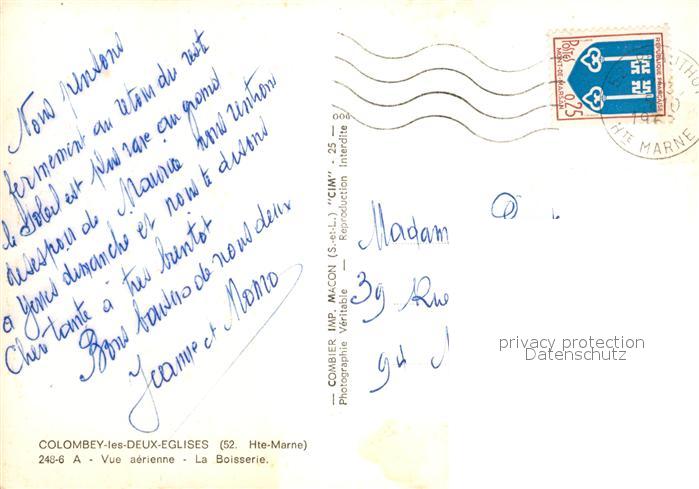 Nous pensons
fermement au retour du reste
le Soleil est plus rare au grand
desespoir de Maurice nous rentrons
a Yerres dimanche et nous te disons
Cher tante à très bientôt
Bons baisers de nous deux
Jeanne et Momo
COLOMBEY-les-DEUX-EGLISES (52. Hte-Marne)
248-6 A - Vue aérienne - La Boisserie.
— COMBIER IMP. MACON (S.-et-L.) "CIM" - 25 —
Photographie Véritable — Reproduction Interdite
REPUBLIQUE FRANÇAISE
POSTES
MONT-DE-MARSAN
0,25
HTE MARNE
Madam
39 Rue
privacy protection
Datenschutz